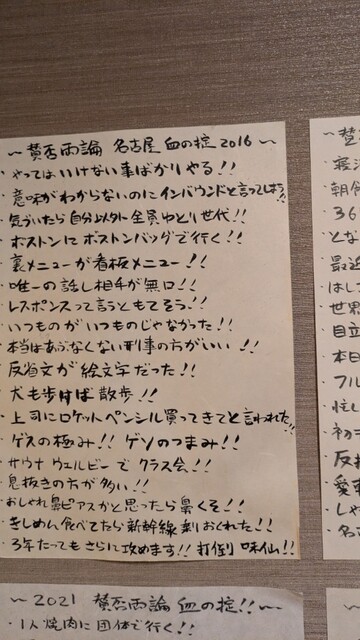 ～賛否両論 名古屋 血の掟2016～
・やってはいけない事ばかりやる!!
・意味がわからないのにインバウンドと言ってしまう!!
・気づいたら自分以外全員ゆとり世代!!
・ボストンにボストンバッグで行く!!
・裏メニューが看板メニュー!!
・唯一の話し相手が無口!!
・レスポンスって言うともてそう!!
・いつものがいつものじゃなかった!!
・本当はあぶなくない刑事の方がいい!!
・反省文が絵文字だった!!
・犬も歩けば散歩!!
・上司にロケットペンシル買ってきてと言われた!!
・ゲスの極み!! ゲソのつまみ!!
・サウナ ウェルビーでクラス会!!
・息抜きの方が多い!!
・おしゃれ鼻ピアスかと思ったら鼻くそ!!
・きしめん食べてたら新幹線乗りおくれた!!
・3年たってもさらに攻めます!! 打倒 味仙!!
～2021 賛否両論 血の掟!!～
・1人焼肉に団体で行く!!
朝食
36
とな
最近
はし
世界
目立
本日
フル
忙し
初
反
愛
しゃ
名